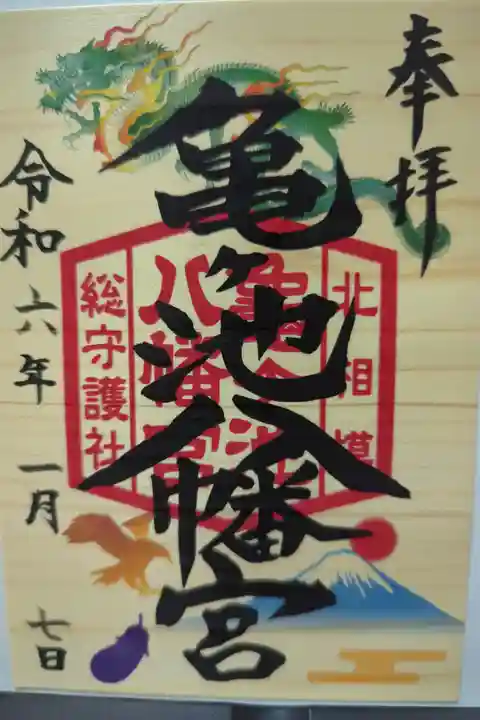 奉拝
亀ヶ池八幡宮
北相模
亀ヶ池
八幡宮
総守護社
令和六年 一月 七日